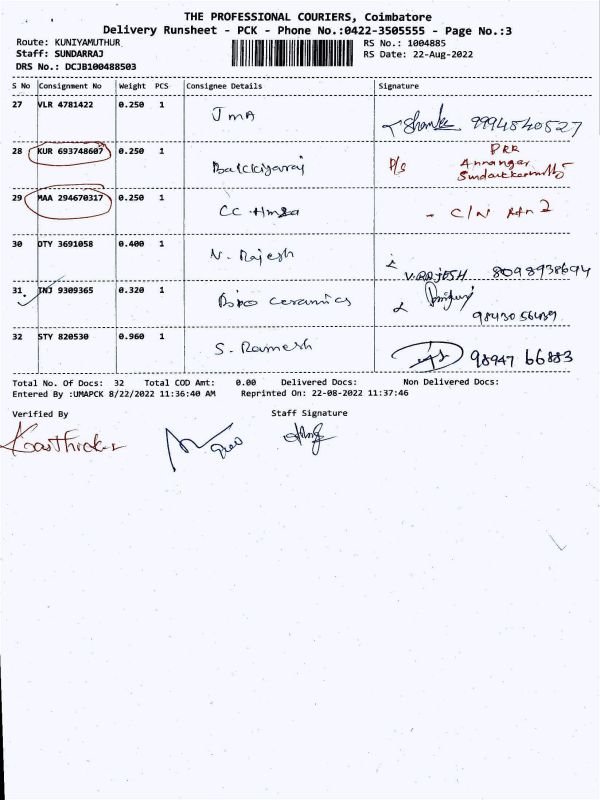 THE PROFESSIONAL COURIERS, Coimbatore
Delivery Runsheet - PCK - Phone No.:0422-3505555 - Page No.:3
Route: KUNIYAMUTHUR
RS No.: 1004885
Staff: SUNDARRAJ
RS Date: 22-Aug-2022
DRS No.: DCJB100488503
S No Consignment No Weight PCS Consignee Details Signature
27 VLR 4781422 0.250 1 JMA 9994540527
28 KUR 693748607 0.250 1
29 MAA 294670317 0.250 1 CC - C/N
30 DTY 3691058 0.400 1 N. Rajesh V.RAJESH 8098938694
31 TNJ 9309365 0.320 1 ceramics
32 STY 820530 0.960 1 S. Ramesh 98947 66883
Total No. Of Docs: 32 Total COD Amt: 0.00 Delivered Docs: Non Delivered Docs:
Entered By :UMAPCK 8/22/2022 11:36:40 AM Reprinted On: 22-08-2022 11:37:46
Verified By Staff Signature